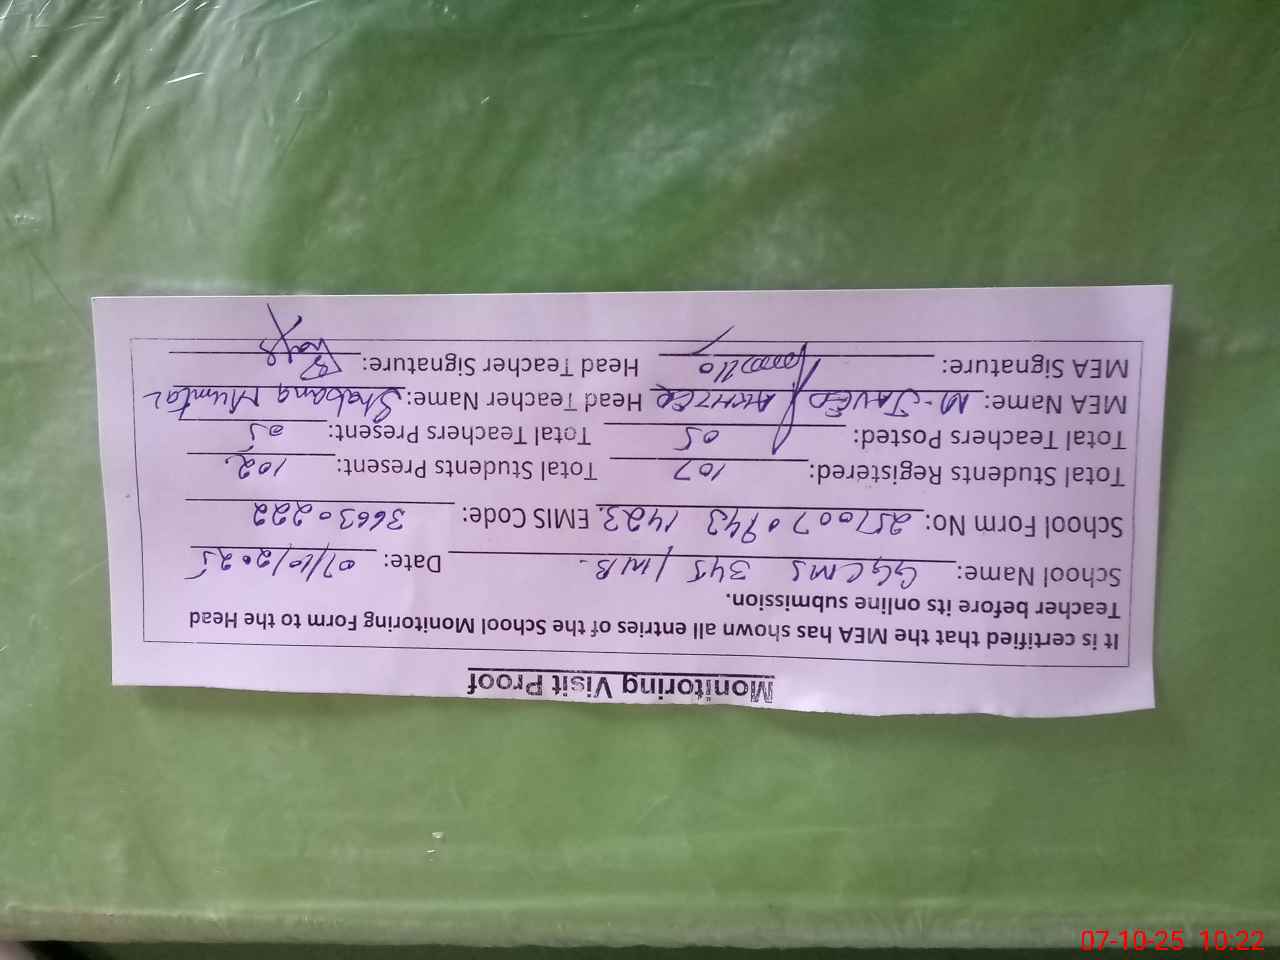 Monitoring Visit Proof
It is certified that the MEA has shown all entries of the School Monitoring Form to the Head
Teacher before its online submission.
School Name: GGCMS 345 / WB. Date: 07/10/2025
School Form No: 2570070943 1423 EMIS Code: 36630222
Total Students Registered: 107 Total Students Present: 102
Total Teachers Posted: 05 Total Teachers Present: 05
MEA Name: M. JAVED AKHTER Head Teacher Name: Shabana Mumtaz
MEA Signature: Head Teacher Signature:
07-10-25 10:22